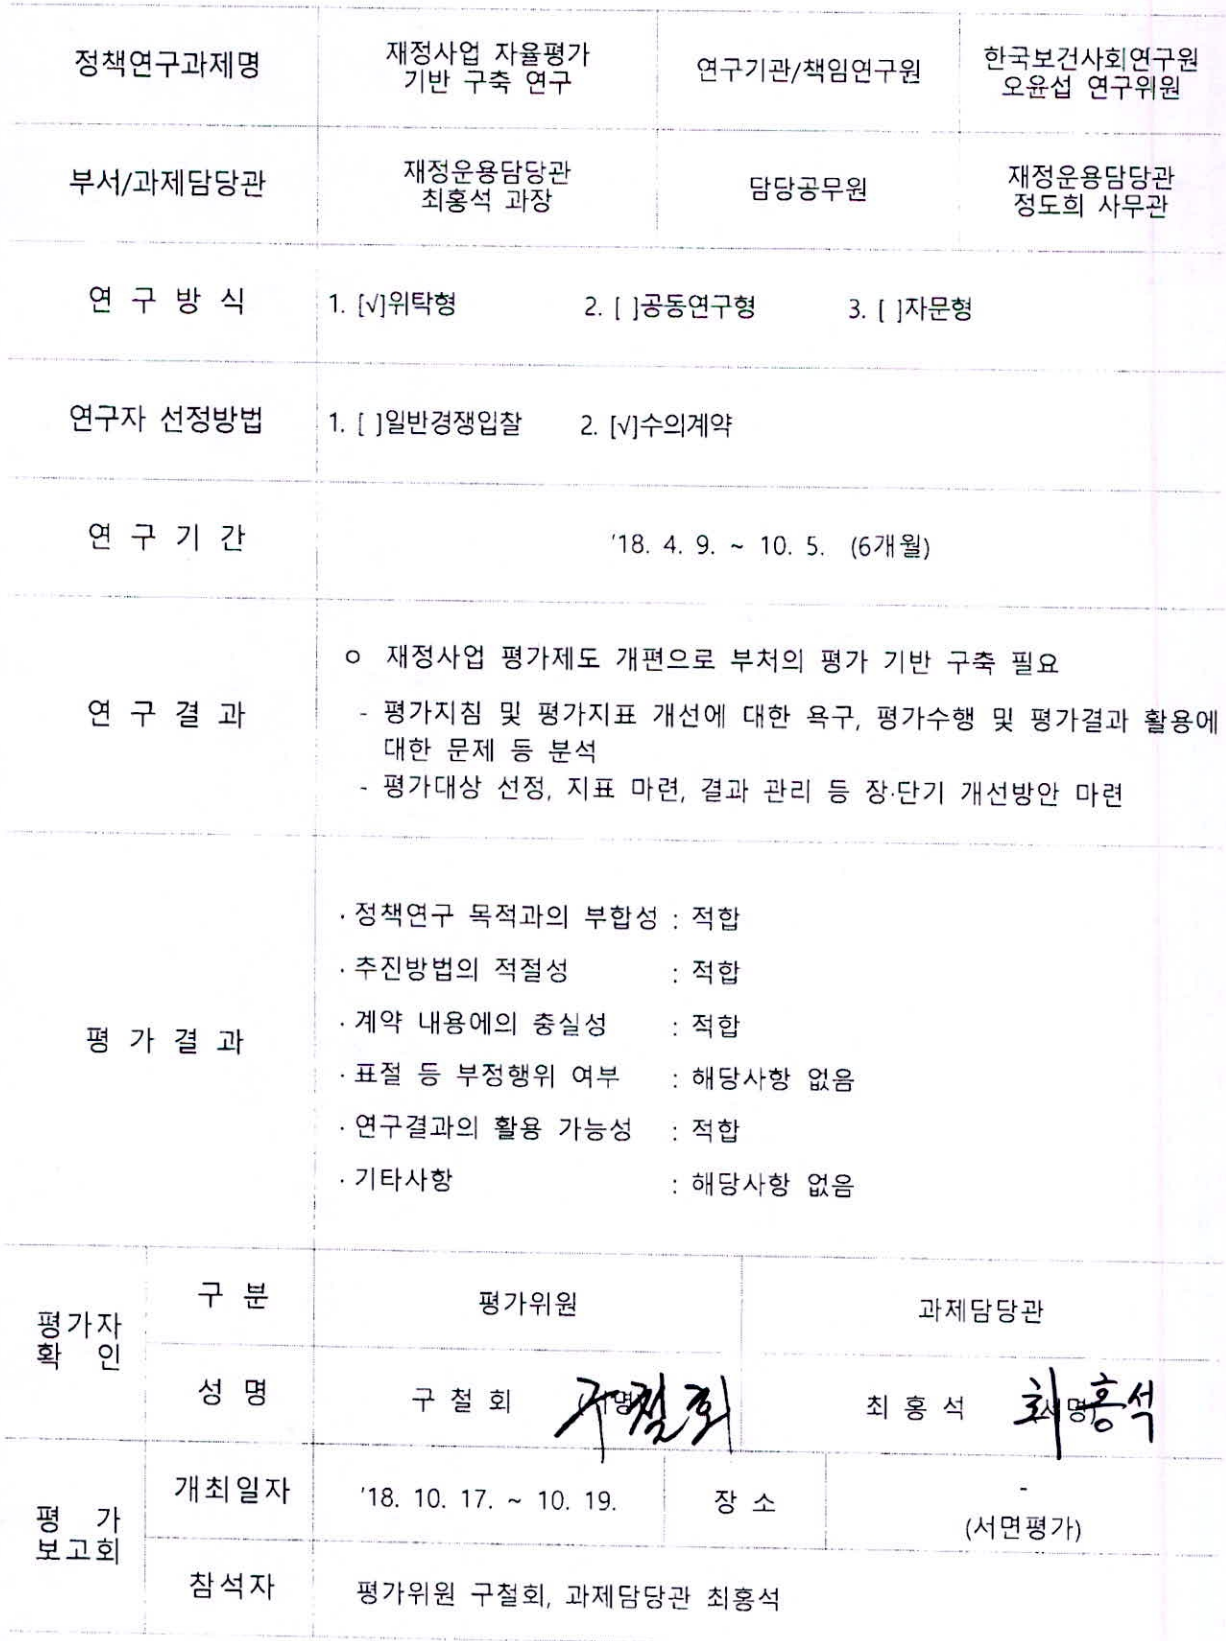 정책연구과제명
재정사업 자율평가
기반 구축 연구
연구기관/책임연구원
한국보건사회연구원
오윤섭 연구위원
부서/과제담당관
재정운용담당관
최홍석 과장
담당공무원
재정운용담당관
정도희 사무관
연 구 방 식
1. [√]위탁형 2. [ ]공동연구형 3. [ ]자문형
연구자 선정방법
1. [ ]일반경쟁입찰 2. [√]수의계약
연 구 기 간
'18. 4. 9. ~ 10. 5. (6개월)
연 구 결 과
ㅇ 재정사업 평가제도 개편으로 부처의 평가 기반 구축 필요
- 평가지침 및 평가지표 개선에 대한 욕구, 평가수행 및 평가결과 활용에
대한 문제 등 분석
- 평가대상 선정, 지표 마련, 결과 관리 등 장·단기 개선방안 마련
평 가 결 과
· 정책연구 목적과의 부합성 : 적합
· 추진방법의 적절성 : 적합
· 계약 내용에의 충실성 : 적합
· 표절 등 부정행위 여부 : 해당사항 없음
· 연구결과의 활용 가능성 : 적합
· 기타사항 : 해당사항 없음
평가자
확 인
구 분
평가위원
과제담당관
성 명
구 철 회 구철회
최 홍 석 최홍석
평 가
보고회
개최일자
'18. 10. 17. ~ 10. 19.
장 소
-
(서면평가)
참석자
평가위원 구철회, 과제담당관 최홍석